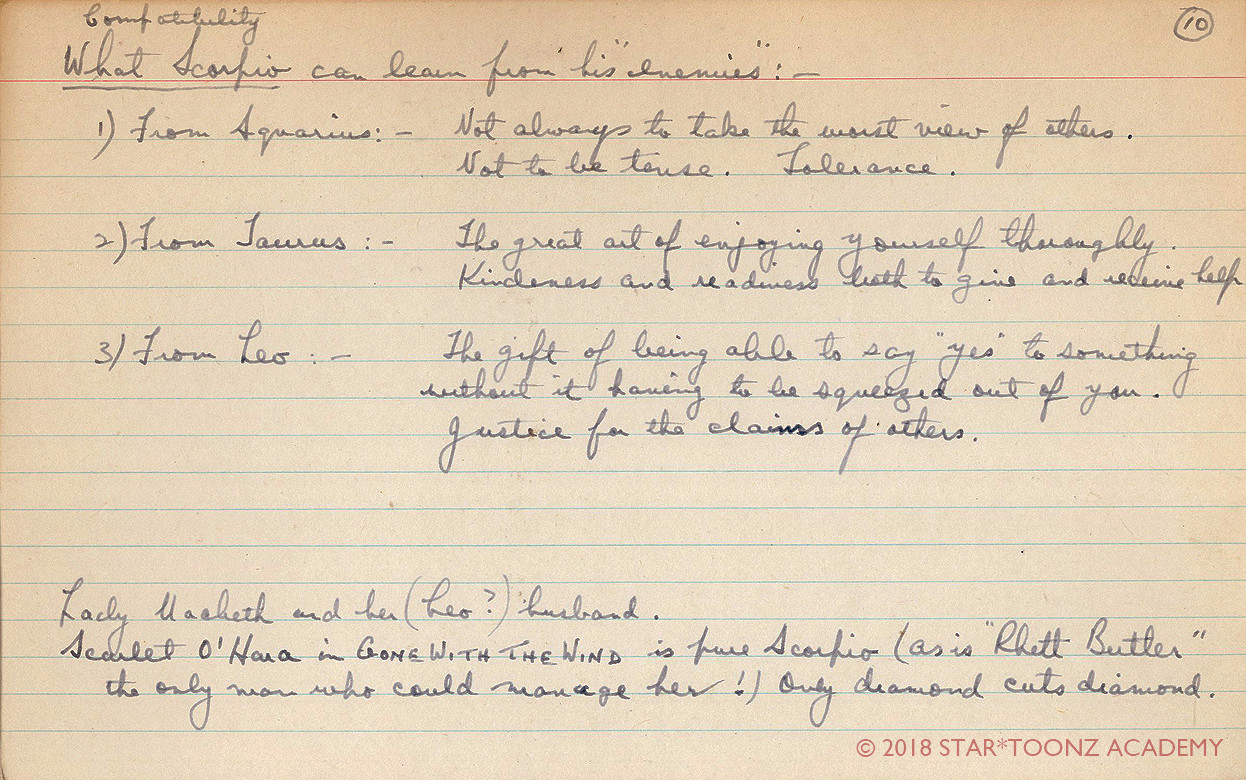 Compatibility
10
What Scorpio can learn from his "enemies" : -
1) From Aquarius: - Not always to take the worst view of others.
Not to be tense. Tolerance.
2) From Taurus : - The great art of enjoying yourself thoroughly.
Kindeness and readiness both to give and receive help
3) From Leo : - The gift of being able to say "yes" to something
without it having to be squeezed out of you.
Justice for the claims of others.
Lady Macbeth and her (Leo?) husband.
Scarlet O'Hara in GONE WITH THE WIND is pure Scorpio (as is "Rhett Butler"
the only man who could manage her!) Only diamond cuts diamond.
© 2018 STAR*TOONZ ACADEMY